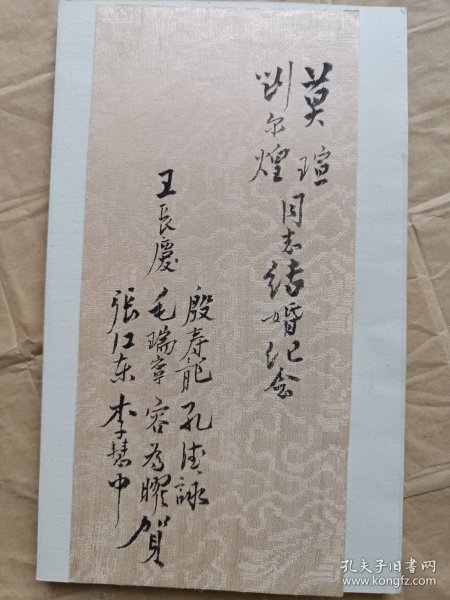 莫瑄
刘尔煌
同志结婚纪念
殷寿龍 孔法詠
王長慶 毛瑞章 容為曜 賀
張江东 李慧中
孔夫子旧书网
www.kongfz.com